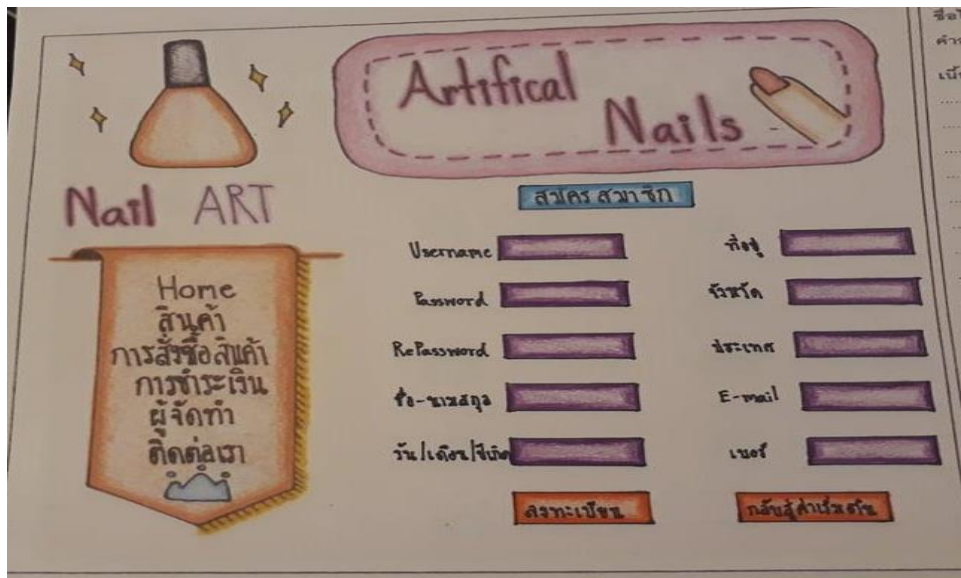 Artifical
Nails
Nail ART
Home
สินค้า
การสั่งซื้อสินค้า
การชำระเงิน
ผู้จัดทำ
ติดต่อเรา
สมัครสมาชิก
Username
Password
RePassword
ชื่อ-นามสกุล
วัน/เดือน/ปีเกิด
ที่อยู่
จังหวัด
ประเทศ
E-mail
เบอร์
ลงทะเบียน
กลับสู่ค่าเริ่มต้น